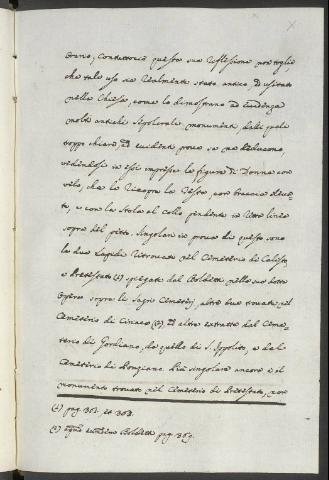 erano, Contuttociò questa sua riflessione non toglie,
che tale uso sia realmente stato antico, ed usitato
nella Chiesa, come lo dimostrano ad evidenza
molti antichi sepolcrali monumenti, dalli quali
troppo chiare, ed evidenti prove se ne deducono,
vedendosi in essi impressa la figura di Donna con
velo, che la ricopre la testa, con braccia eleva-
te, e con la Stola al collo pendente in retta linea
sopra del petto. Singolari in prova di questo sono
le due Lapidi ritrovate nel Cemeterio di Calisto,
e Pretestato (1) spiegate dal Boldetti nella sua dotta
Opera sopra li Sagri Cemeterj, altre due trovate nel
Cemeterio di Ciriaca (2), Ed altre estratte dal Ceme-
terio di Gordiano, da quello di S. Ippolito, e dal
Cemeterio di Ponziano. Più singolare ancora è il
monumento trovato nel Cemeterio di Pretestato, con
(1) pag. 361. et 362.
(2) Boldetti pag. 369.